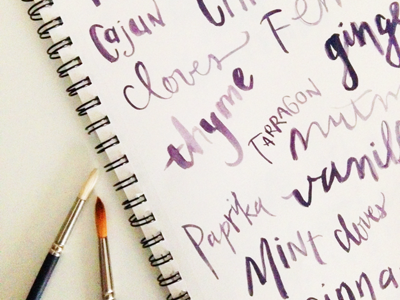 Cajun
cloves Fen
thyme ginge
TARRAGON nutm
Paprika vanill
MiNt cloves
innam